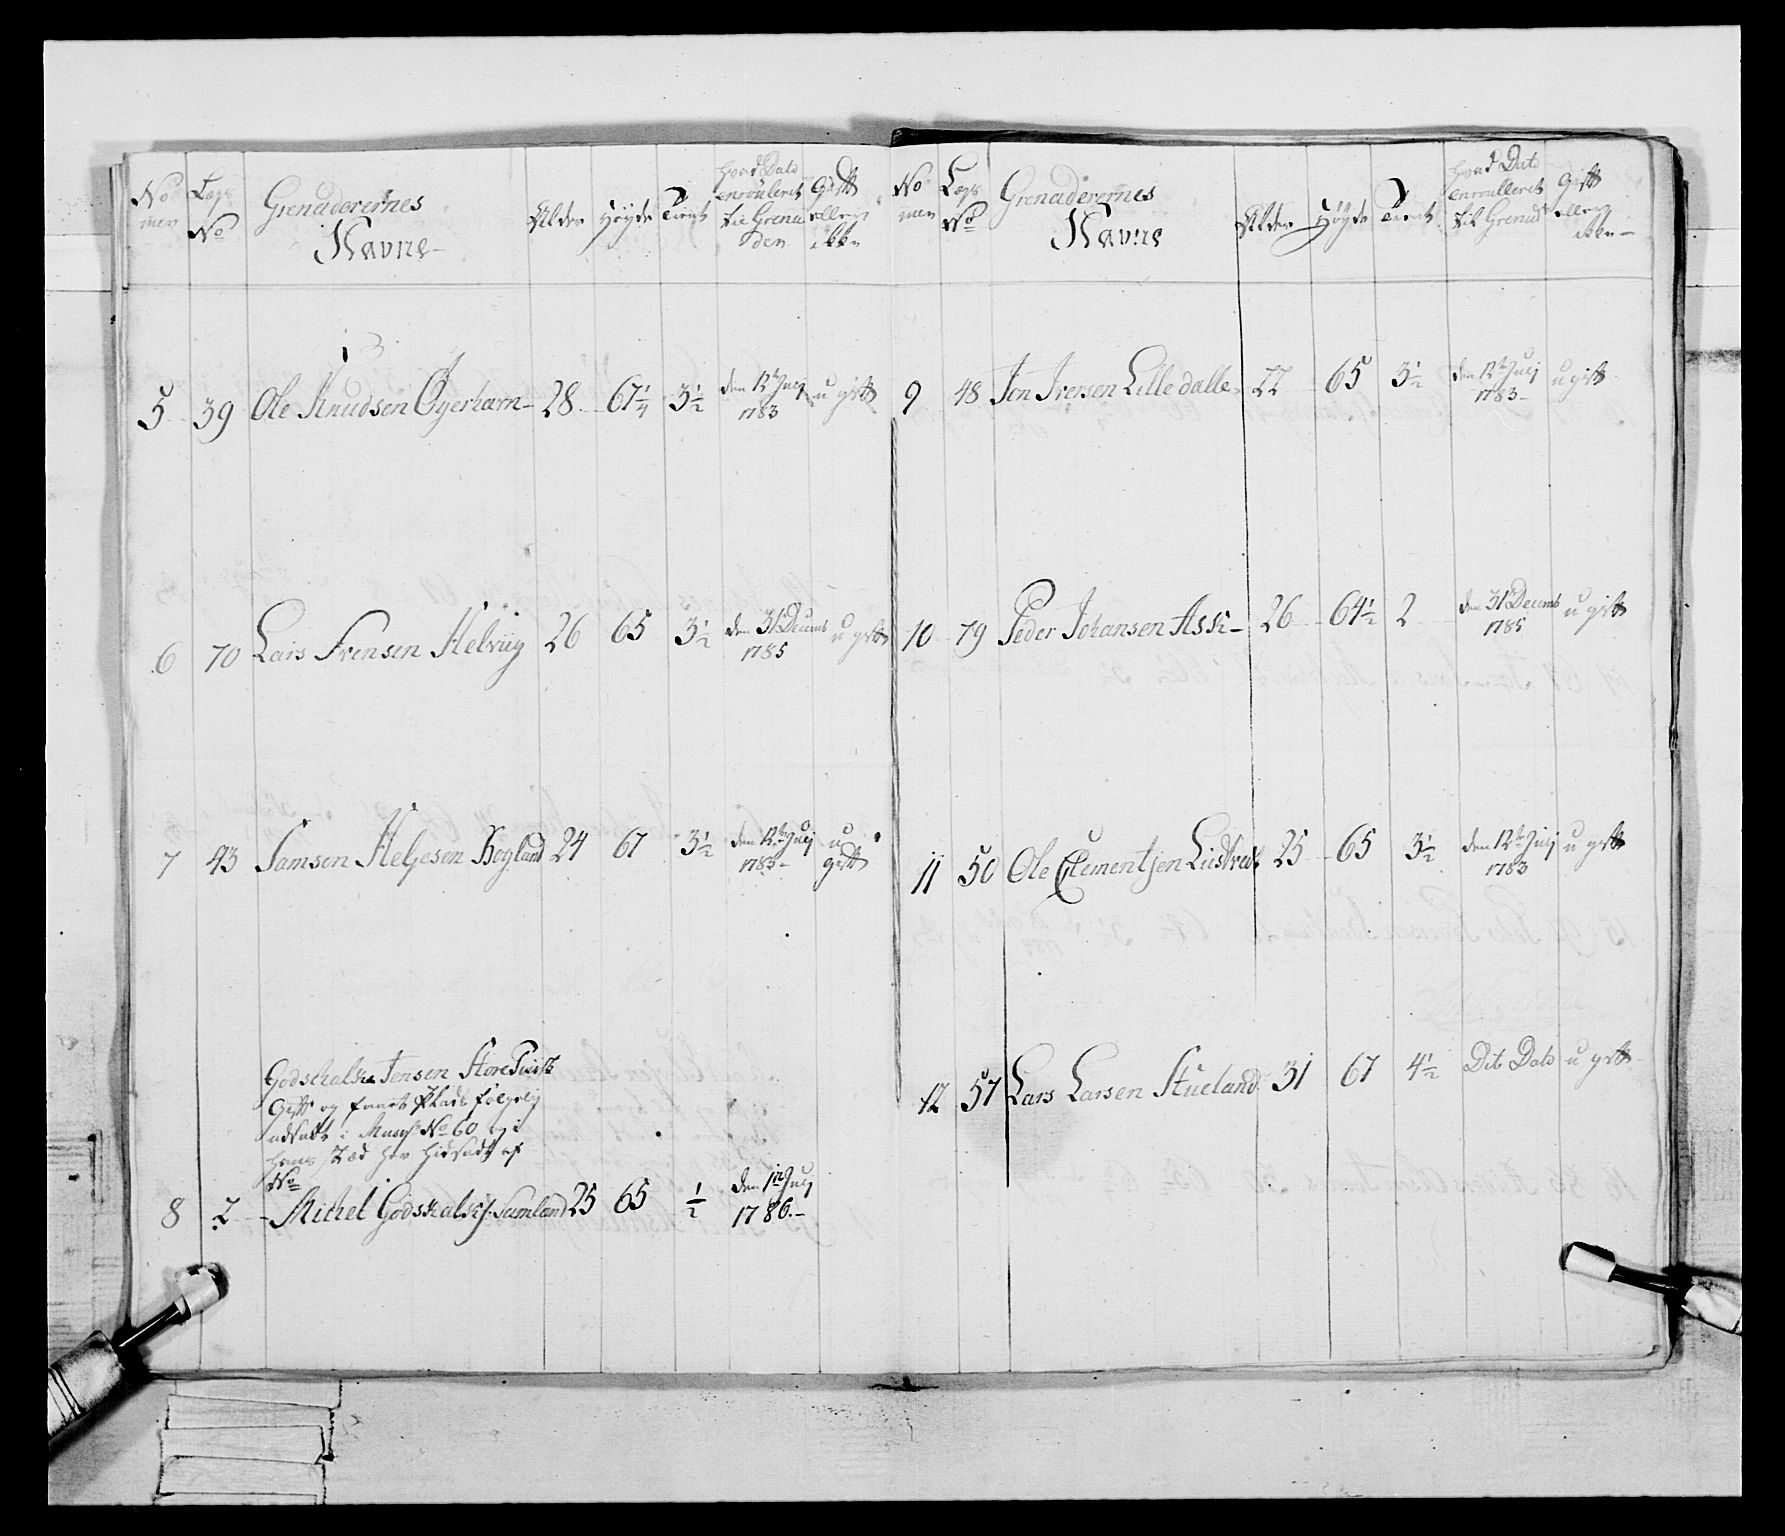 No
mer
Lægs
No
Grenaderernes
Navne
Alder
Høyde
Tient
hvad Dato
enroulert
til Grena
der
Gift
eller
ikke
5 39 Ole Knudsen Øyerhavn 28 67 1/4 3 1/2 den 12te Julj 1783 ugift
6 70 Lars Frensen Helviig 26 65 3 1/2 den 31 Decemb 1785 ugift
7 43 Samsen Heljesen Hogland 24 67 3 1/2 den 12te Julj 1783 ugift
Godschalck Jensen Store
Gift og faaet Plads følgelig
udsadt i No 60 og i
hans Stæd her hidsadt af
No
8 2 Michel Godskalks. Samland 25 65 1/2 den 1te Julj 1786.
No
mer
Lægs
No
Grenaderernes
Navne
Alder
Høyde
Tient
hvad Dato
enroulleret
til Grenad
Gift
eller
ikke
9 48 Jon Iversen Lilledalle 22 65 3 1/2 den 12te Julj 1783 ugift
10 79 Peder Johansen Ask 26 64 1/2 2 den 31 Decemb 1785 ugift
11 50 Ole Clementsen 25 65 3 1/2 den 12te Julj 1783 ugift
12 57 Lars Larsen Stueland 31 67 4 1/2 Dito Dato ugift